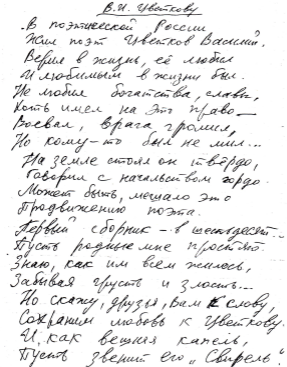 В.И. Цветкову
В поэтической России
Жил поэт Цветков Василий,
Верил в жизнь, её любил
И любимым в жизни был.
Не любил богатства, славы,
Хоть имел на это право —
Воевал, врага громил,
Но кому-то был не мил...
На земле стоял он твёрдо,
Говорил с начальством гордо.
Может быть, мешало это
Продвижению поэта.
Первый сборник — в шестьдесят...
Пусть родные мне простят.
Знаю, как им всем жилось,
Забывая грусть и злость...
Но скажу, друзья, Вам к слову,
Сохраним любовь к Цветкову.
И, как вешняя капель,
Пусть звенит его „Свирель".